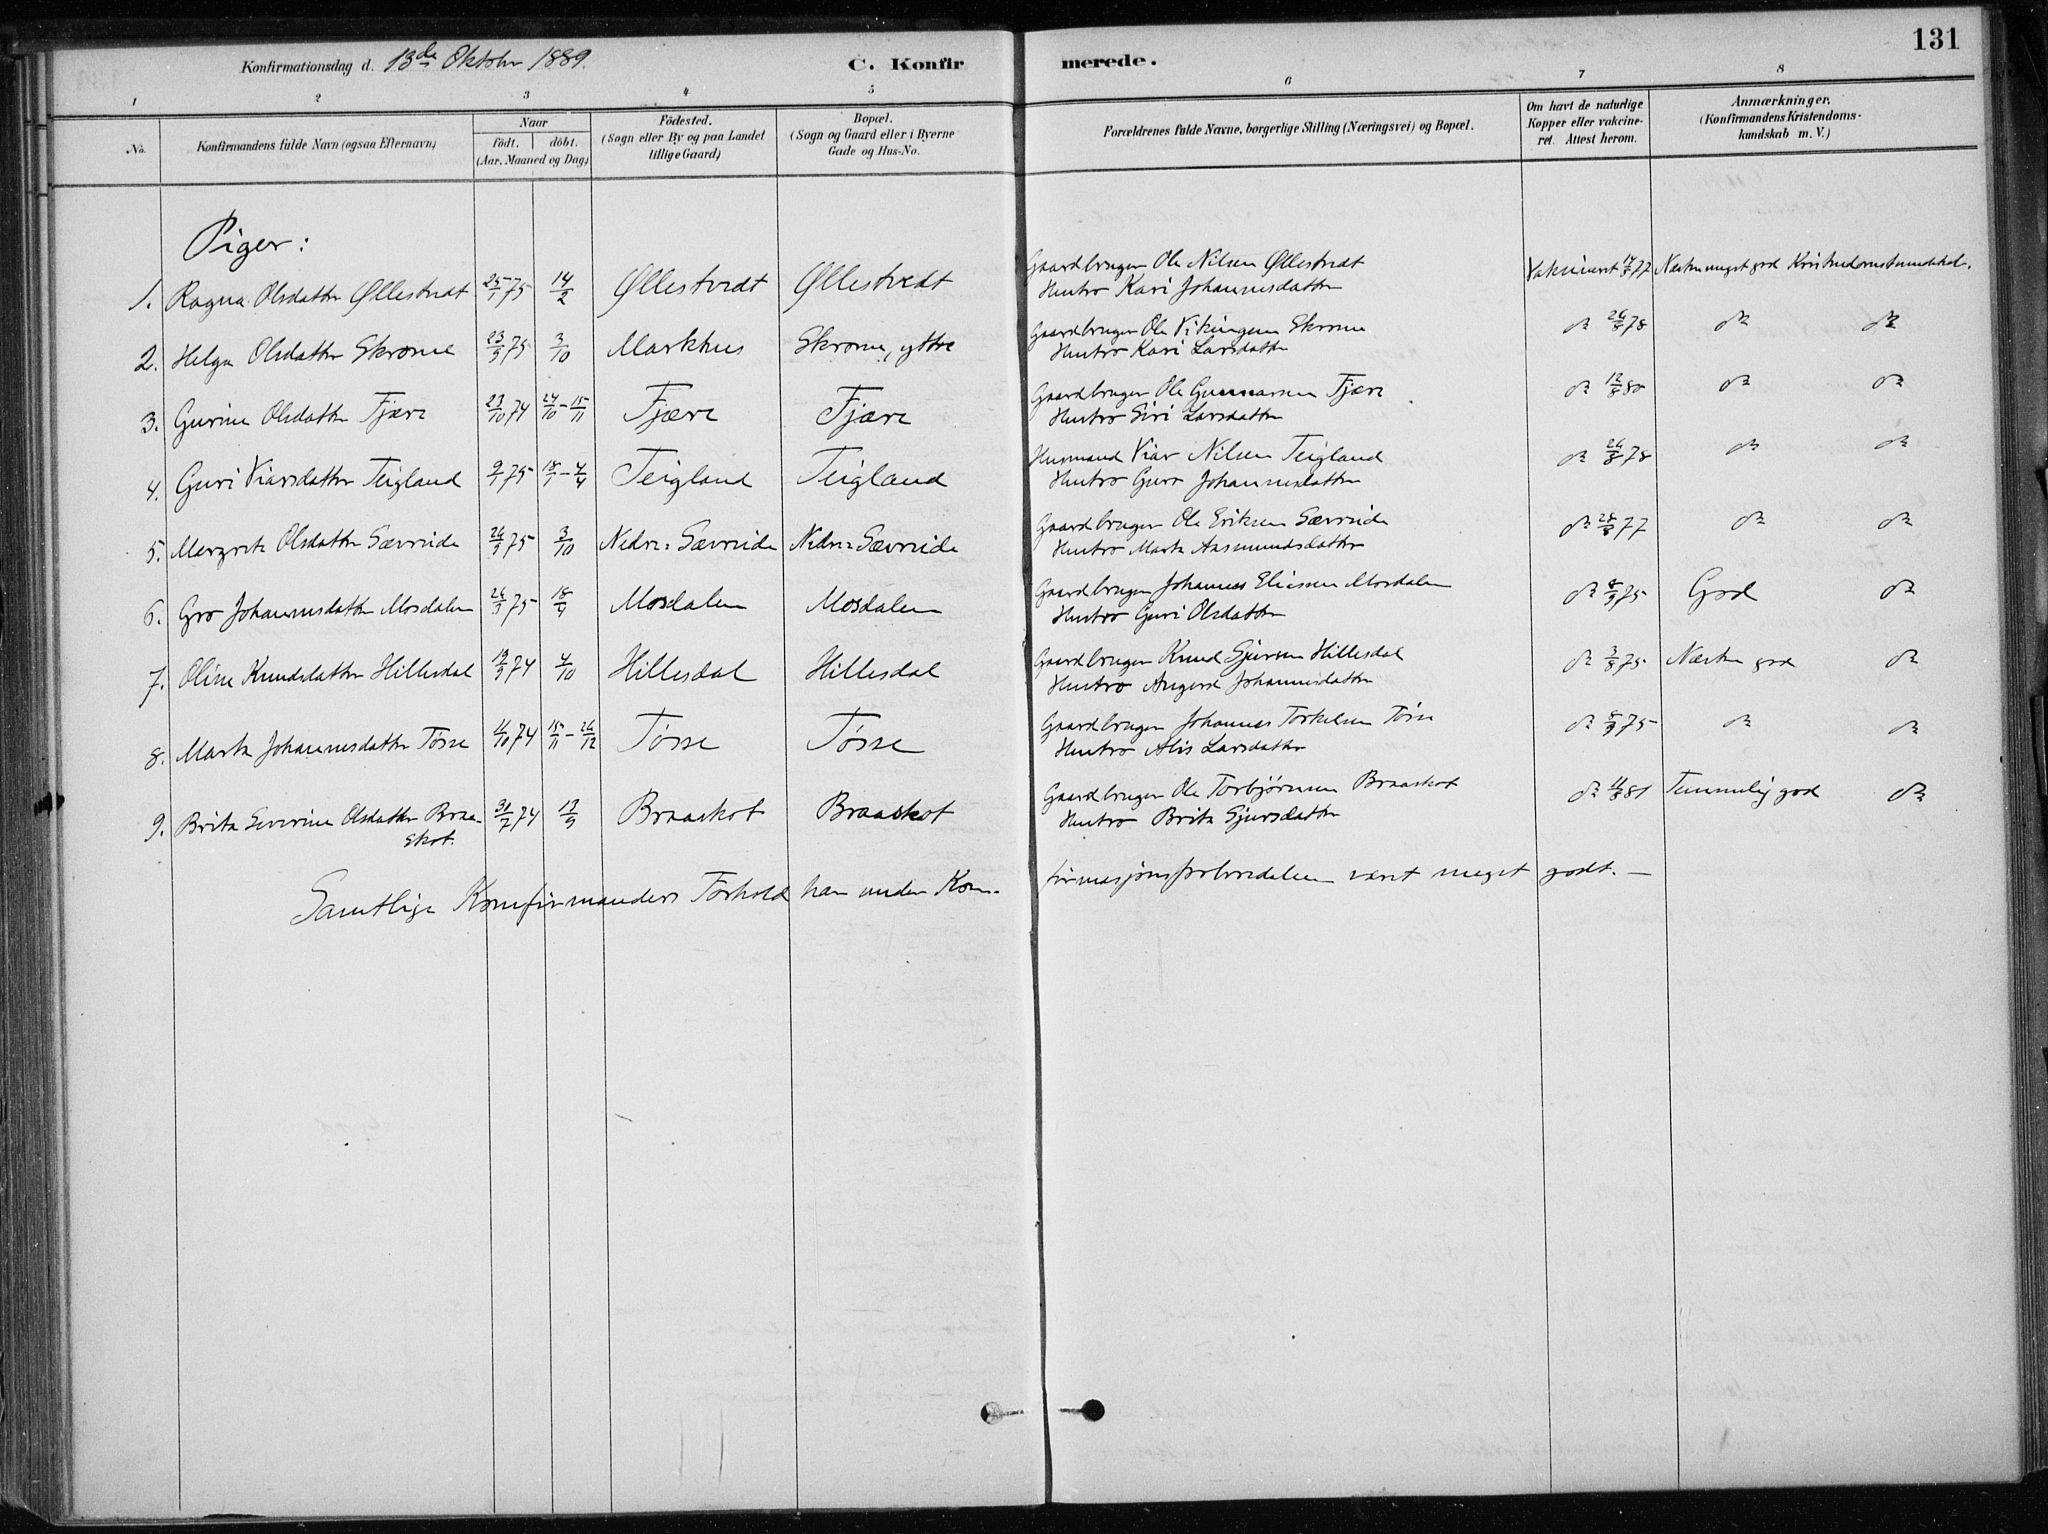 131
Konfirmationsdag d. 13de Oktober 1889. C. Konfirmerede.
1 2 3 4 5 6 7 8
No. Konfirmandens fulde Navn (ogsaa Efternavn) Naar födt. döbt. (Aar, Maaned og Dag) Födested. (Sogn eller By og paa Landet tillige Gaard) Bopæl. (Sogn og Gaard eller i Byerne Gade og Hus-No. Forældrenes fulde Navne, borgerlige Stilling (Næringsvei) og Bopæl. Om havt de naturlige Kopper eller vakcineret. Attest herom. Anmærkninger. (Konfirmandens Kristendomskundskab m. V.)
Piger:
1. Ragna Olsdatter Øllestvedt 25/1 75 14/2 Øllestvedt Øllestvedt Gaardbruger Ole Nilsen Øllestvedt Vakcineret 77 Næsten meget god Kristendomskundskab.
Hustro Kari Johannesdatter
2. Helga Olsdatter Skromme 23/9 75 3/10 Markhus Skromme, yttre Gaardbruger Ole Vikingsen Skromme do 26/8 78 do do
Hustro Kari Larsdatter
3. Gurine Olsdatter Fjære 23/10 74 24/10 - 15/11 Fjære Fjære Gaardbruger Ole Gunnarsen Fjære do 12/8 80 do do
Hustro Siri Larsdatter
4. Guri Viarsdatter Teigland 75 Teigland Teigland Husmand Viar Nilsen Teigland do 26/8 78 do do
Hustro Guro Johannesdatter
5. Margrete Olsdatter Sævreide 26/9 75 3/10 Nedre Sævreide Nedre Sævreide Gaardbruger Ole Eriksen Sævreide do 28/8 77 do do
Hustro Marta Aasmundsdatter
6. Gro Johannesdatter Mosdalen 75 18/9 Mosdalen Mosdalen Gaardbruger Johannes Eliasen Mosdalen do 8/9 75 God do
Hustro Guri Olsdatter
7. Oline Knudsdatter Hillesdal 19/9 74 4/10 Hillesdal Hillesdal Gaardbruger Knud Sjursen Hillesdal do 3/8 75 Næsten god do
Hustro Angerd Johannesdatter
8. Marta Johannesdatter Tøsse 74 15/11 - 26/12 Tøsse Tøsse Gaardbruger Johannes Torkelsen Tøsse do 8/9 75 do do
Hustro Alis Larsdatter
9. Brita Severine Olsdatter Braa- 31/7 74 13/9 Braaskot Braaskot Gaardbruger Ole Torbjørnsen Braaskot do 81 Temmelig god do
skot. Hustro Brita Sjursdatter
Samtlige Konfirmanders Forhold har under Konfirmasjonsforberedelsen været meget godt. —